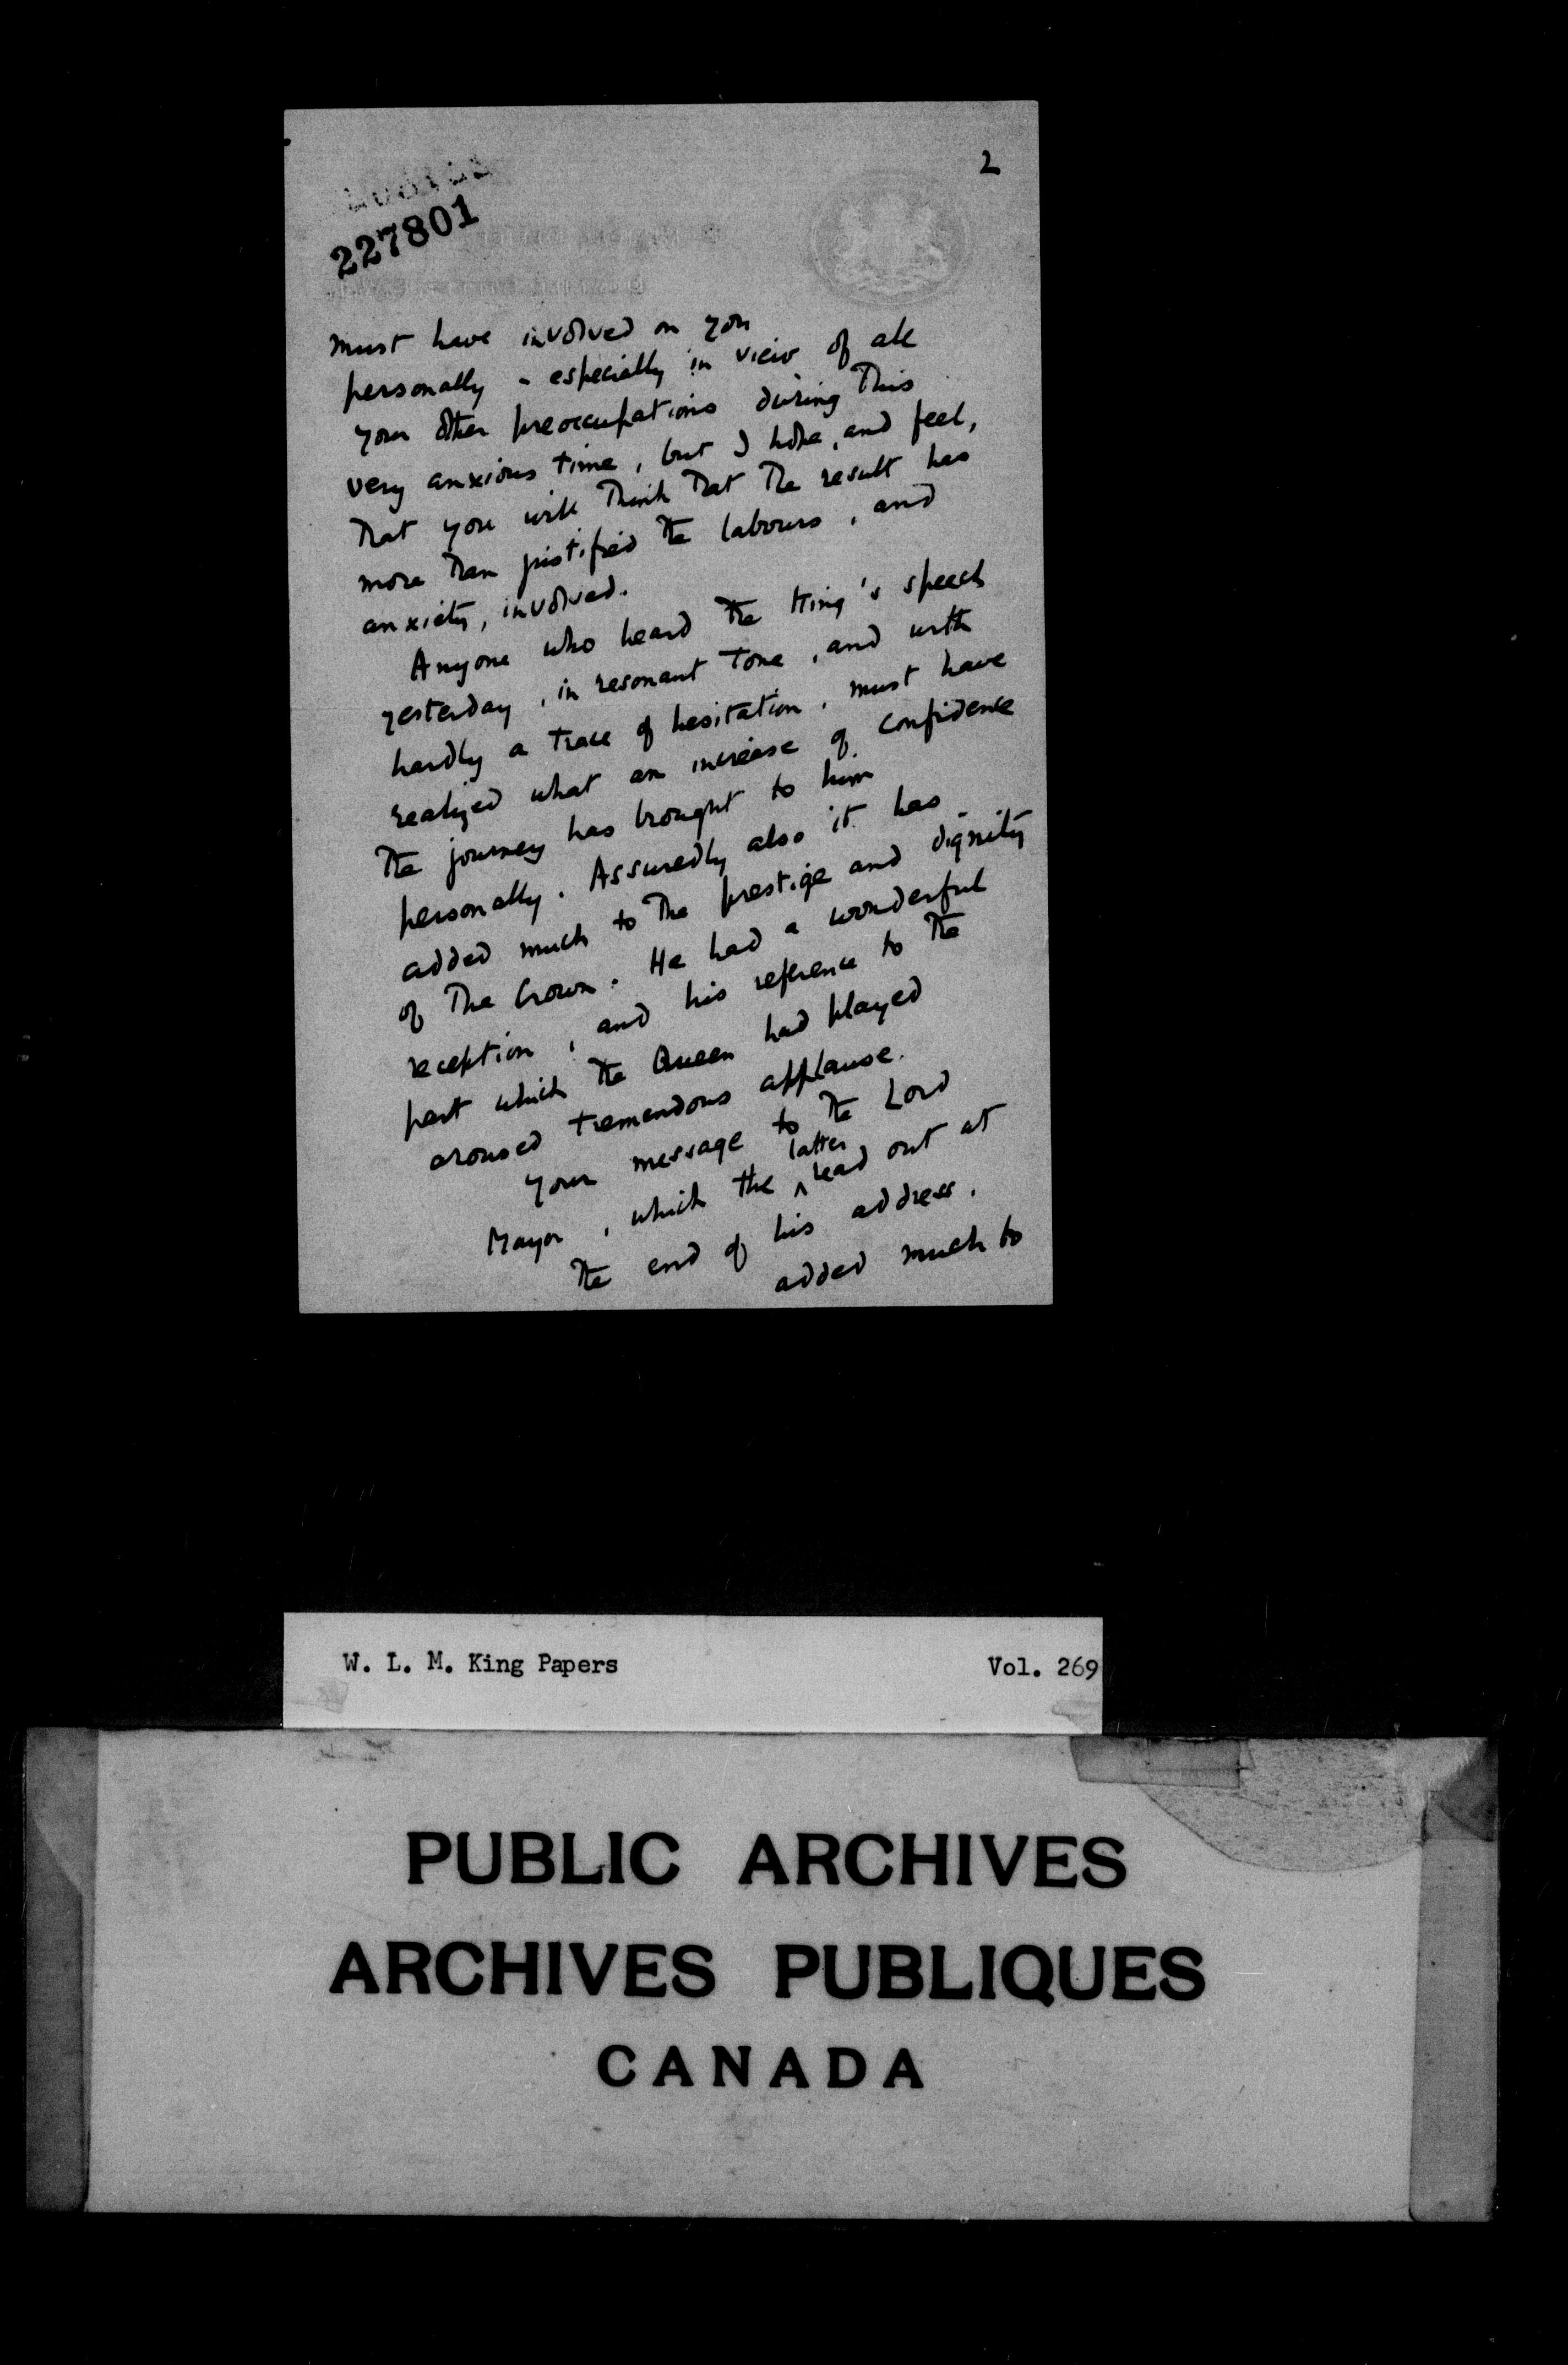 2
227801
must have involved on you
personally - especially in view of all
your other preoccupations during this
very anxious time, but I hope, and feel,
that you will think that the result has
more than justified the labours, and
anxiety, involved.
Anyone who heard the King's speech
yesterday, in resonant tone, and with
hardly a trace of hesitation, must have
realized what an increase of confidence
the journey has brought to him
personally. Assuredly also it has
added much to the prestige and dignity
of the Crown. He had a wonderful
reception, and his reference to the
part which the Queen had played
aroused tremendous applause.
Your message to the Lord
Mayor, which the latter read out at
the end of his address,
added much to
W. L. M. King Papers Vol. 269
PUBLIC ARCHIVES
ARCHIVES PUBLIQUES
CANADA